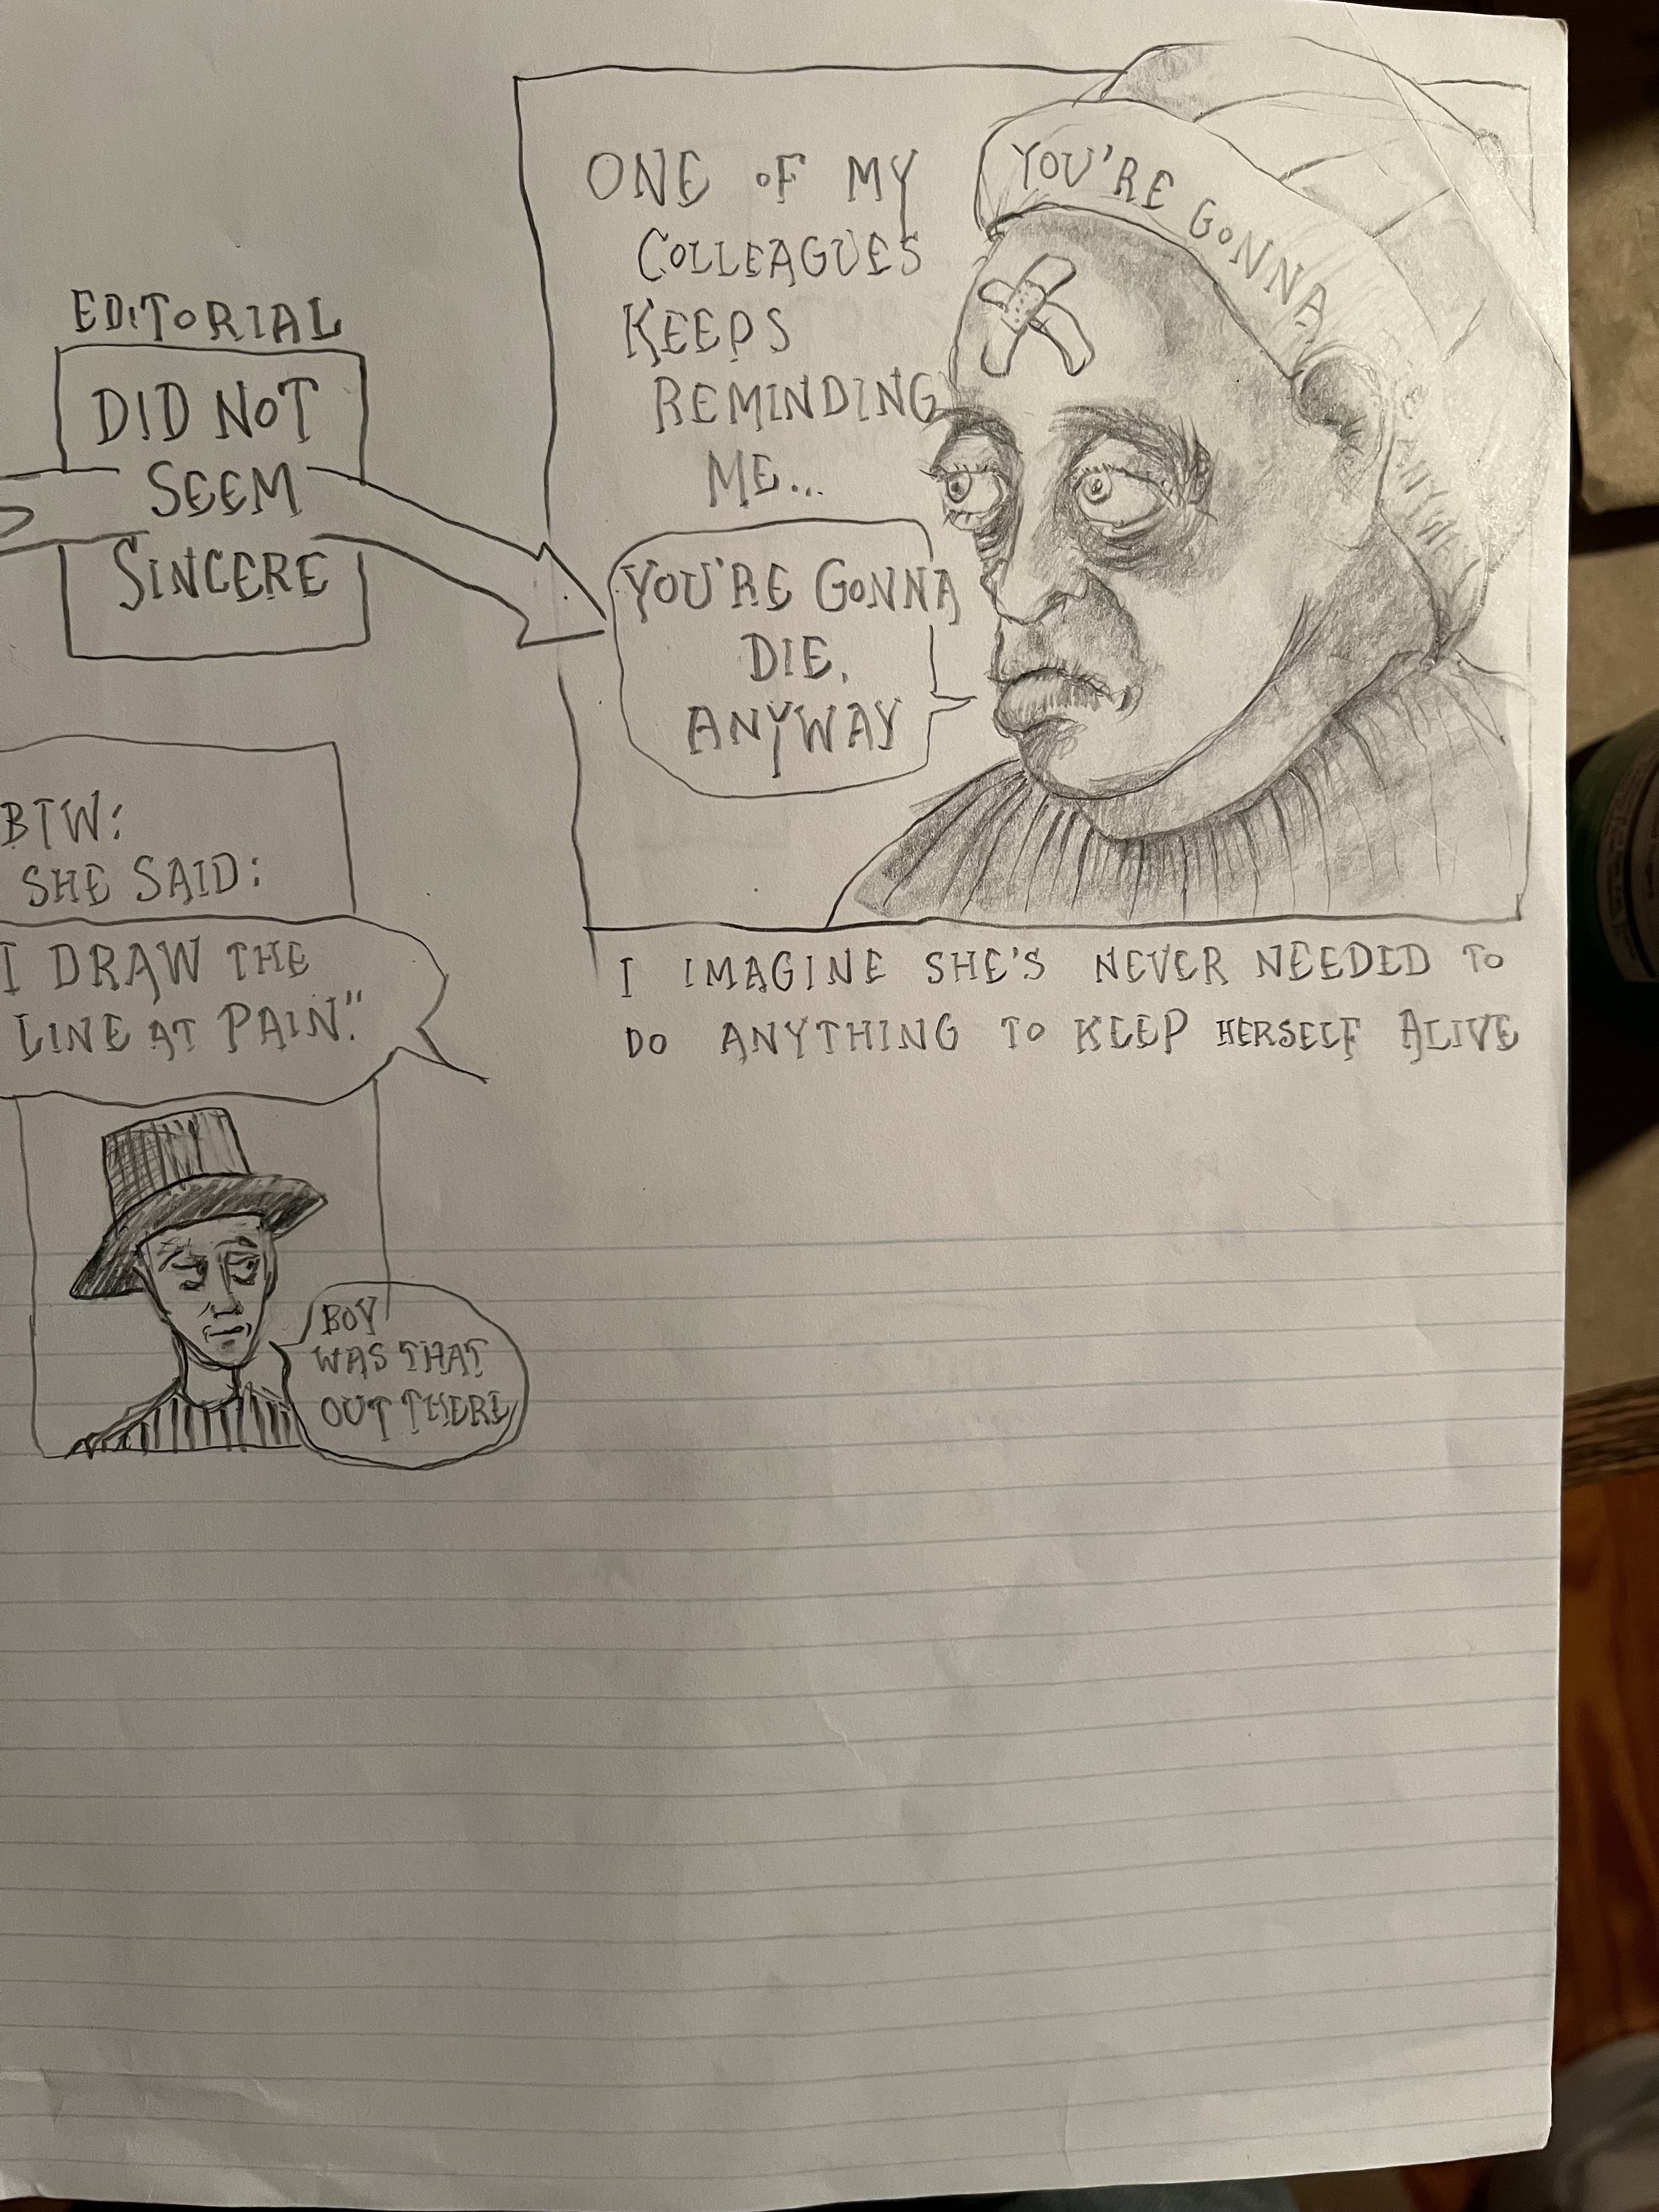 EDITORIAL
DID NOT
SEEM
SINCERE
ONE OF MY
COLLEAGUES
KEEPS
REMINDING
ME...
YOU'RE GONNA
DIE.
ANYWAY
YOU'RE GONNA
ANYW
I IMAGINE SHE'S NEVER NEEDED TO
DO ANYTHING TO KEEP HERSELF ALIVE
BTW:
SHE SAID:
I DRAW THE
LINE AT PAIN."
BOY
WAS THAT
OUT THERE